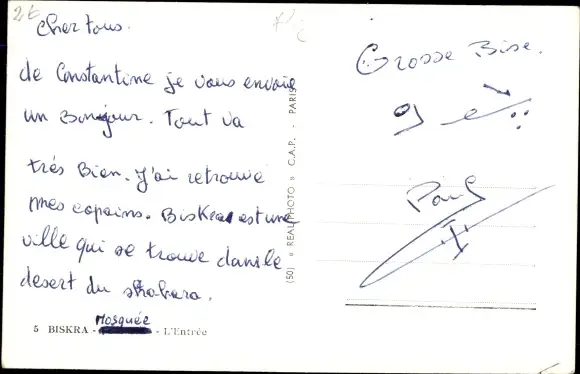 2€
Cher tous.
de Constantine je vous envoie
un Bonjour. Tout va
très Bien. J'ai retrouvé
mes copains. Biskra est une
ville qui se trouve dans le
desert du sahara.
Mosquée
5 BISKRA - - L'Entrée
(50) « REAL-PHOTO » C.A.P. - PARIS
Grosse Bise.
Paul